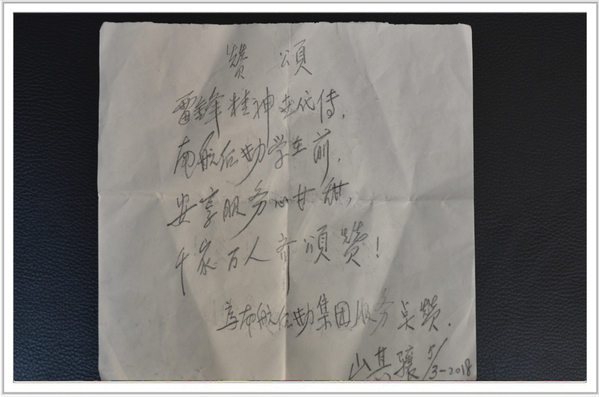 赞 頌
雷锋精神世代传,
南航后勤学在前,
安享服务心甘甜,
千家万人齐頌赞!
为南航后勤集团服务点赞.
山其骧 5/3-2018